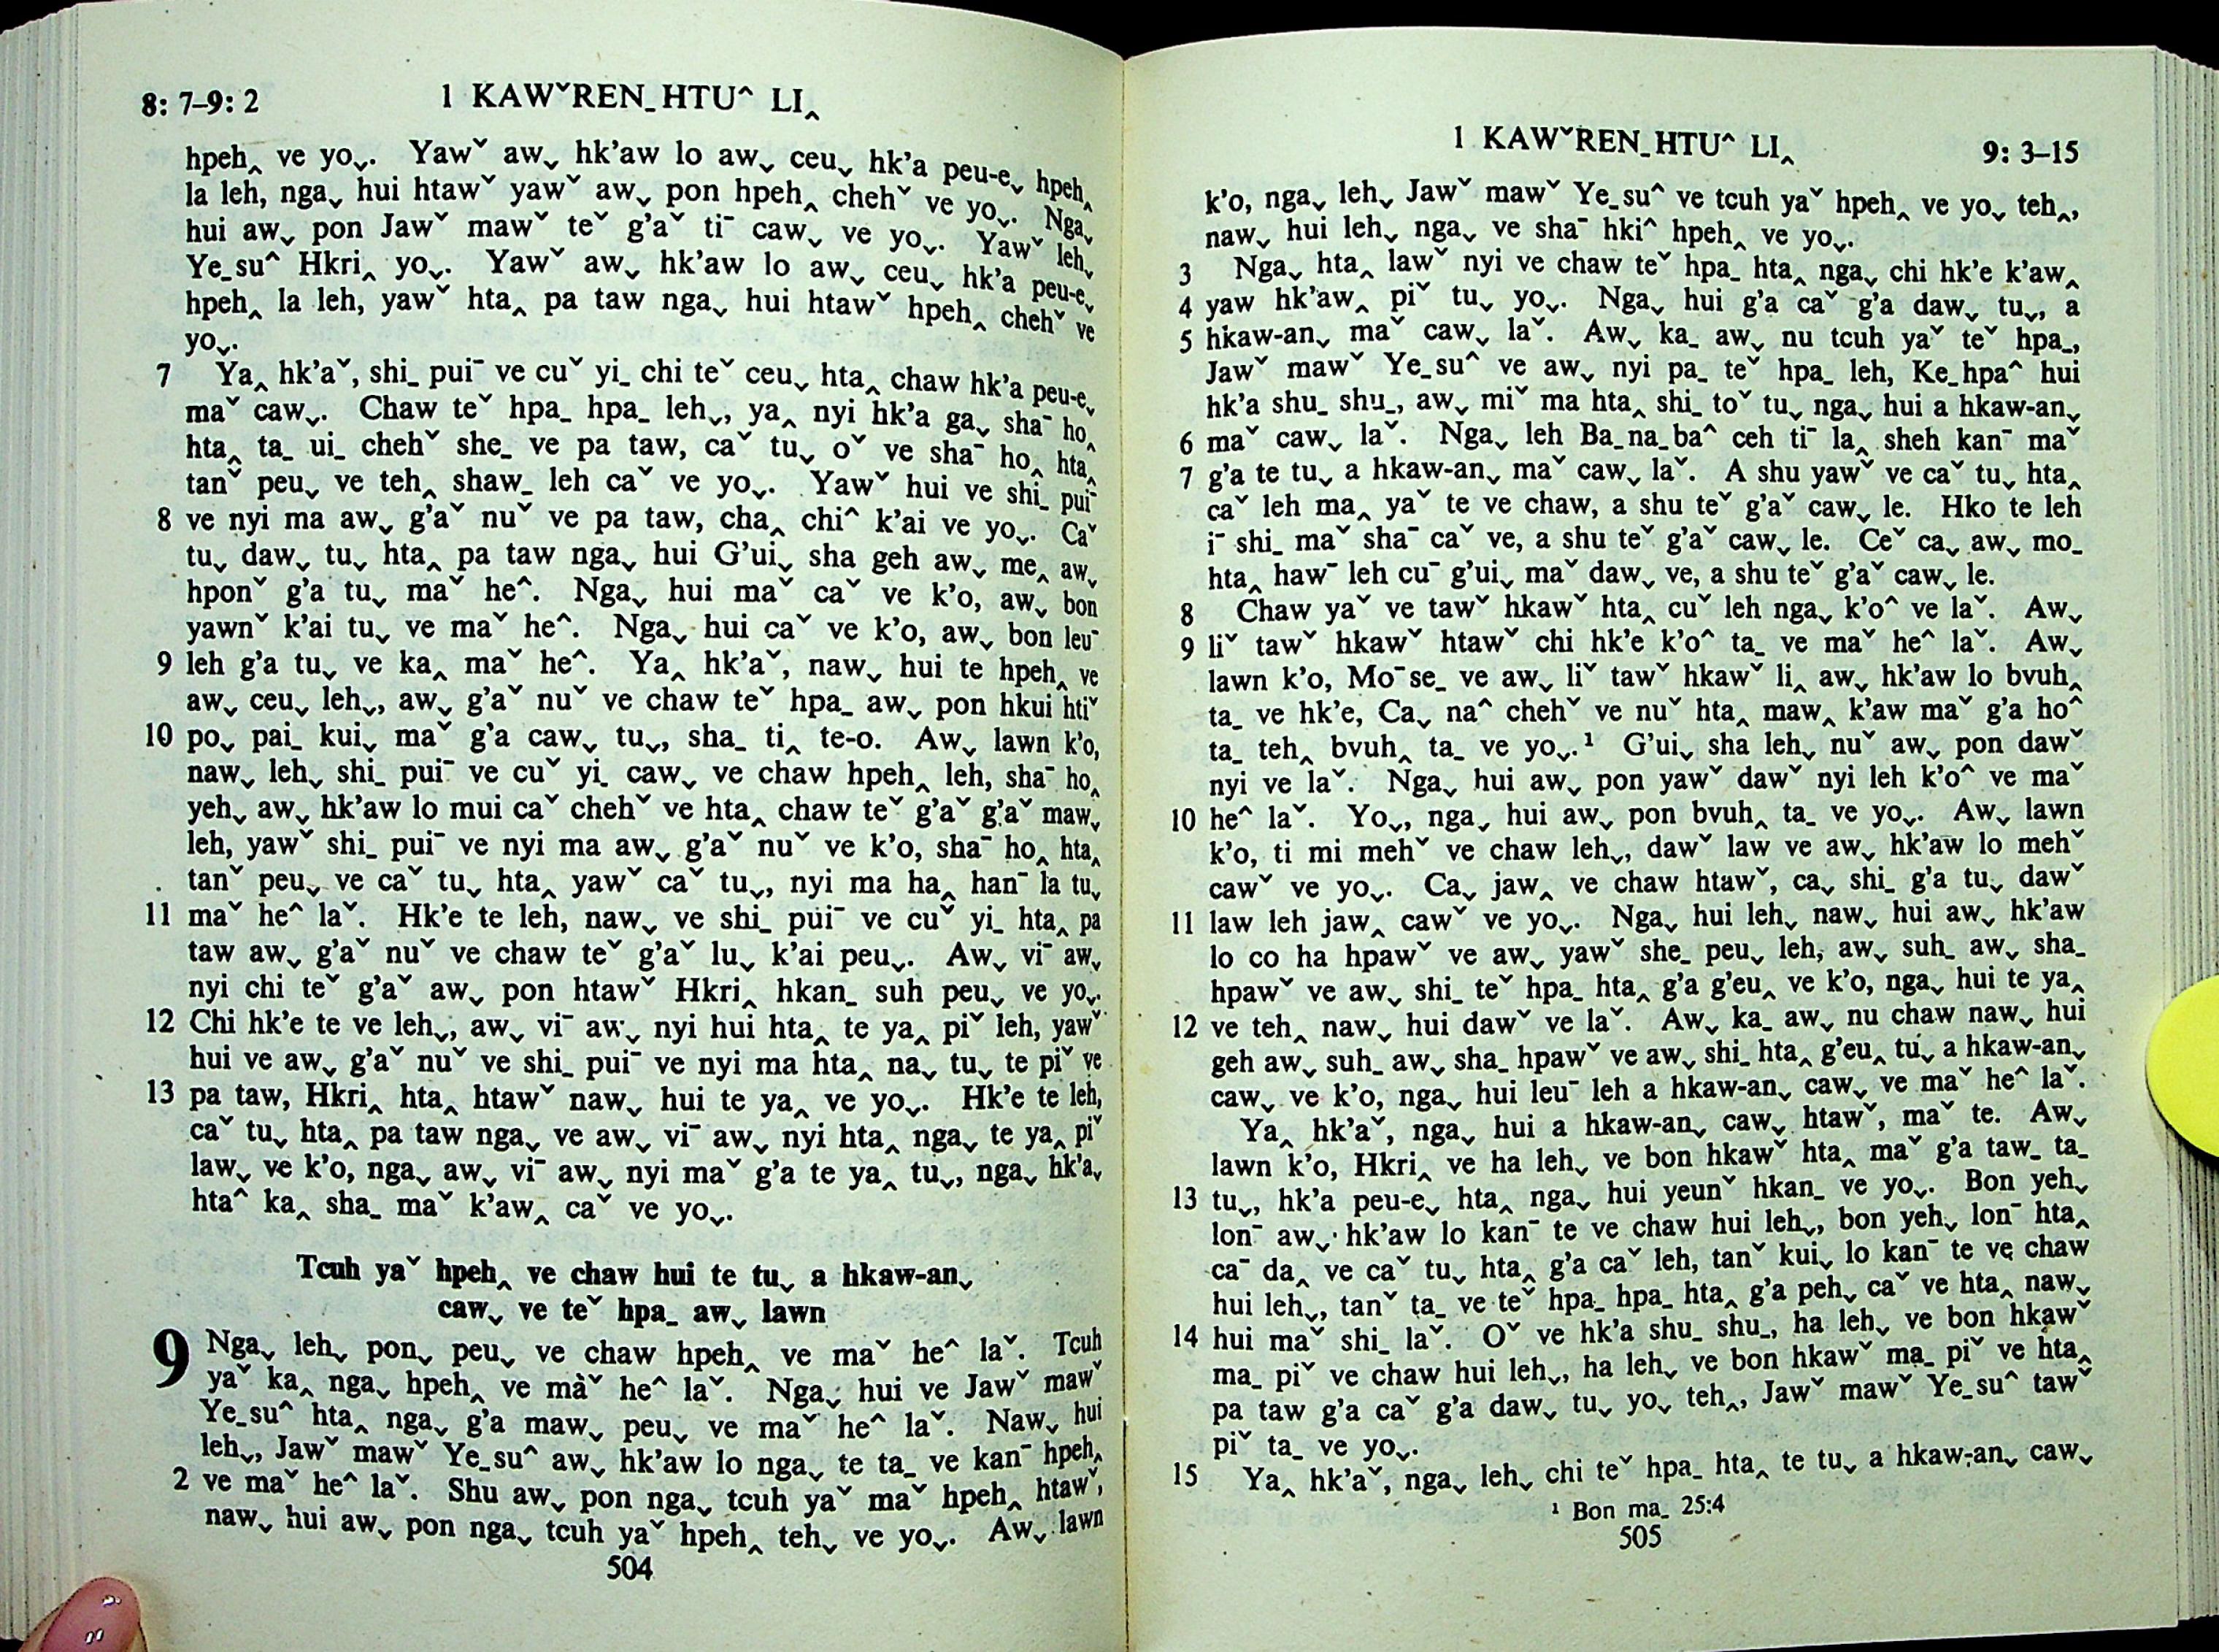 8: 7–9: 2
1 KAWˇREN_HTU^ LI‸
hpeh‸ ve yoˬ. Yawˇ awˬ hk’aw lo awˬ ceuˬ hk’a peu-eˬ hpeh‸
la leh, ngaˬ hui htawˇ yawˇ awˬ pon hpeh‸ chehˇ ve yoˬ. Ngaˬ
hui awˬ pon Jawˇ mawˇ teˇ g’aˇ ti¯ cawˬ ve yoˬ. Yawˇ lehˬ
Ye_su^ Hkri‸ yoˬ. Yawˇ awˬ hk’aw lo awˬ ceuˬ hk’a peu-eˬ
hpeh‸ la leh, yawˇ hta‸ pa taw ngaˬ hui htawˇ hpeh‸ chehˇ ve
yoˬ.
7 Ya‸ hk’aˇ, shi_ pui¯ ve cuˇ yi_ chi teˇ ceuˬ hta‸ chaw hk’a peu-eˬ
maˇ cawˬ. Chaw teˇ hpa_ hpa_ lehˬ, ya‸ nyi hk’a gaˬ sha¯ ho‸
hta‸ ta_ ui_ chehˇ she_ ve pa taw, caˇ tuˬ oˇ ve sha¯ ho‸ hta‸
tanˇ peuˬ ve teh‸ shaw_ leh caˇ ve yoˬ. Yawˇ hui ve shi_ pui¯
8 ve nyi ma awˬ g’aˇ nuˇ ve pa taw, cha‸ chi^ k’ai ve yoˬ. Caˇ
tuˬ dawˬ tuˬ hta‸ pa taw ngaˬ hui G’uiˬ sha geh awˬ me‸ awˬ
hponˇ g’a tuˬ maˇ he^. Ngaˬ hui maˇ caˇ ve k’o, awˬ bon
yawnˇ k’ai tuˬ ve maˇ he^. Ngaˬ hui caˇ ve k’o, awˬ bon leu¯
9 leh g’a tuˬ ve ka‸ maˇ he^. Ya‸ hk’aˇ, nawˬ hui te hpeh‸ ve
awˬ ceuˬ lehˬ, awˬ g’aˇ nuˇ ve chaw teˇ hpa_ awˬ pon hkui htiˇ
10 poˬ pai_ kuiˬ maˇ g’a cawˬ tuˬ, sha_ ti‸ te-o. Awˬ lawn k’o,
nawˬ lehˬ shi_ pui¯ ve cuˇ yi_ cawˬ ve chaw hpeh‸ leh, sha¯ ho‸
yehˬ awˬ hk’aw lo mui caˇ chehˇ ve hta‸ chaw teˇ g’aˇ g’aˇ mawˬ
leh, yawˇ shi_ pui¯ ve nyi ma awˬ g’aˇ nuˇ ve k’o, sha¯ ho‸ hta‸
tanˇ peuˬ ve caˇ tuˬ hta‸ yawˇ caˇ tuˬ, nyi ma ha‸ han¯ la tuˬ
11 maˇ he^ laˇ. Hk’e te leh, nawˬ ve shi_ pui¯ ve cuˇ yi_ hta‸ pa
taw awˬ g’aˇ nuˇ ve chaw teˇ g’aˇ luˬ k’ai peuˬ. Awˬ vi¯ awˬ
nyi chi teˇ g’aˇ awˬ pon htawˇ Hkri‸ hkan_ suh peuˬ ve yoˬ.
12 Chi hk’e te ve lehˬ, awˬ vi¯ awˬ nyi hui hta‸ te ya‸ piˇ leh, yawˇ
hui ve awˬ g’aˇ nuˇ ve shi_ pui¯ ve nyi ma hta‸ naˬ tuˬ te piˇ ve
13 pa taw, Hkri‸ hta‸ htawˇ nawˬ hui te ya‸ ve yoˬ. Hk’e te leh,
caˇ tuˬ hta‸ pa taw ngaˬ ve awˬ vi¯ awˬ nyi hta‸ ngaˬ te ya‸ piˇ
lawˬ ve k’o, ngaˬ awˬ vi¯ awˬ nyi maˇ g’a te ya‸ tuˬ, ngaˬ hk’aˬ
hta^ ka‸ sha_ maˇ k’aw‸ caˇ ve yoˬ.
Tcuh yaˇ hpeh‸ ve chaw hui te tuˬ a hkaw-anˬ
cawˬ ve teˇ hpa_ awˬ lawn
9 Ngaˬ lehˬ ponˬ peuˬ ve chaw hpeh‸ ve maˇ he^ laˇ. Tcuh
yaˇ ka‸ ngaˬ hpeh‸ ve maˇ he^ laˇ. Ngaˬ hui ve Jawˇ mawˇ
Ye_su^ hta‸ ngaˬ g’a mawˬ peuˬ ve maˇ he^ laˇ. Nawˬ hui
lehˬ, Jawˇ mawˇ Ye_su^ awˬ hk’aw lo ngaˬ te ta_ ve kan¯ hpeh‸
2 ve maˇ he^ laˇ. Shu awˬ pon ngaˬ tcuh yaˇ maˇ hpeh‸ htawˇ,
nawˬ hui awˬ pon ngaˬ tcuh yaˇ hpeh‸ tehˬ ve yoˬ. Awˬ lawn
504
1 KAWˇREN_HTU^ LI‸
9: 3–15
k’o, ngaˬ lehˬ Jawˇ mawˇ Ye_su^ ve tcuh yaˇ hpeh‸ ve yoˬ teh‸,
nawˬ hui lehˬ ngaˬ ve sha¯ hki^ hpeh‸ ve yoˬ.
3 Ngaˬ hta‸ lawˇ nyi ve chaw teˇ hpa_ hta‸ ngaˬ chi hk’e k’aw‸
4 yaw hk’aw‸ piˇ tuˬ yoˬ. Ngaˬ hui g’a caˇ g’a dawˬ tuˬ, a
5 hkaw-anˬ maˇ cawˬ laˇ. Awˬ ka_ awˬ nu tcuh yaˇ teˇ hpa_,
Jawˇ mawˇ Ye_su^ ve awˬ nyi pa_ teˇ hpa_ leh, Ke_hpa^ hui
hk’a shu_ shu_, awˬ miˇ ma hta‸ shi_ toˇ tuˬ ngaˬ hui a hkaw-anˬ
6 maˇ cawˬ laˇ. Ngaˬ leh Ba_na_ba^ ceh ti¯ la‸ sheh kan¯ maˇ
7 g’a te tuˬ a hkaw-anˬ maˇ cawˬ laˇ. A shu yawˇ ve caˇ tuˬ hta‸
caˇ leh ma‸ yaˇ te ve chaw, a shu teˇ g’aˇ cawˬ le. Hko te leh
i¯ shi_ maˇ sha¯ caˇ ve, a shu teˇ g’aˇ cawˬ le. Ceˇ caˬ awˬ mo_
hta‸ haw¯ leh cu¯ g’uiˬ maˇ dawˬ ve, a shu teˇ g’aˇ cawˬ le.
8 Chaw yaˇ ve tawˇ hkawˇ hta‸ cuˇ leh ngaˬ k’o^ ve laˇ. Awˬ
9 liˇ tawˇ hkawˇ htawˇ chi hk’e k’o^ ta_ ve maˇ he^ laˇ. Awˬ
lawn k’o, Mo¯se_ ve awˬ liˇ tawˇ hkawˇ li‸ awˬ hk’aw lo bvuh‸
ta_ ve hk’e, Caˬ na^ chehˇ ve nuˇ hta‸ maw‸ k’aw maˇ g’a ho^
ta_ teh‸ bvuh‸ ta_ ve yoˬ.¹ G’uiˬ sha lehˬ nuˇ awˬ pon dawˇ
nyi ve laˇ. Ngaˬ hui awˬ pon yawˇ dawˇ nyi leh k’o^ ve maˇ
10 he^ laˇ. Yoˬ, ngaˬ hui awˬ pon bvuh‸ ta_ ve yoˬ. Awˬ lawn
k’o, ti mi mehˇ ve chaw lehˬ, dawˇ law ve awˬ hk’aw lo mehˇ
cawˇ ve yoˬ. Caˬ jaw‸ ve chaw htawˇ, caˬ shi_ g’a tuˬ dawˇ
11 law leh jaw‸ cawˇ ve yoˬ. Ngaˬ hui lehˬ nawˬ hui awˬ hk’aw
lo co ha hpawˇ ve awˬ yawˇ she_ peuˬ leh, awˬ suh_ awˬ sha_
hpawˇ ve awˬ shi_ teˇ hpa_ hta‸ g’a g’eu‸ ve k’o, ngaˬ hui te ya‸
12 ve teh‸ nawˬ hui dawˇ ve laˇ. Awˬ ka_ awˬ nu chaw nawˬ hui
geh awˬ suh_ awˬ sha_ hpawˇ ve awˬ shi_ hta‸ g’eu‸ tuˬ a hkaw-anˬ
cawˬ ve k’o, ngaˬ hui leu¯ leh a hkaw-anˬ cawˬ ve maˇ he^ laˇ.
Ya‸ hk’aˇ, ngaˬ hui a hkaw-anˬ cawˬ htawˇ, maˇ te. Awˬ
lawn k’o, Hkri‸ ve ha lehˬ ve bon hkawˇ hta‸ maˇ g’a taw_ ta_
13 tuˬ, hk’a peu-eˬ hta‸ ngaˬ hui yeunˇ hkan_ ve yoˬ. Bon yehˬ
lon¯ awˬ hk’aw lo kan¯ te ve chaw hui lehˬ, bon yehˬ lon¯ hta‸
ca¯ da‸ ve caˇ tuˬ hta‸ g’a caˇ leh, tanˇ kuiˬ lo kan¯ te ve chaw
hui lehˬ, tanˇ ta_ ve teˇ hpa_ hpa_ hta‸ g’a pehˬ caˇ ve hta‸ nawˬ
14 hui maˇ shi_ laˇ. Oˇ ve hk’a shu_ shu_, ha lehˬ ve bon hkawˇ
ma_ piˇ ve chaw hui lehˬ, ha lehˬ ve bon hkawˇ ma_ piˇ ve hta‸
pa taw g’a caˇ g’a dawˬ tuˬ yoˬ teh‸, Jawˇ mawˇ Ye_su^ tawˇ
piˇ ta_ ve yoˬ.
15 Ya‸ hk’aˇ, ngaˬ lehˬ chi teˇ hpa_ hta‸ te tuˬ a hkaw-anˬ cawˬ
¹ Bon ma_ 25:4
505